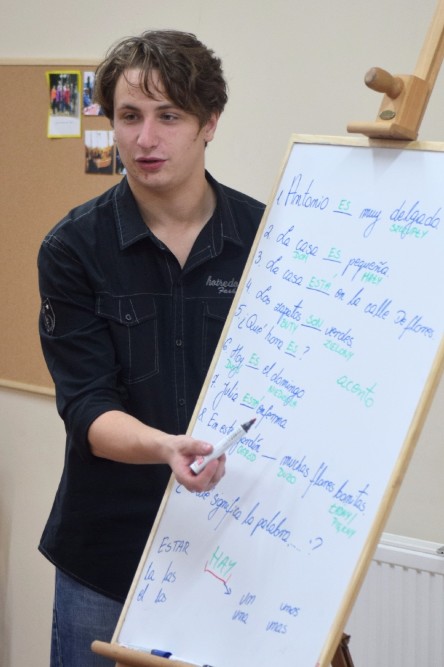 1. Antonio ES muy delgado
2. La casa ES pequeña
3. La casa ESTÁ en la calle De flores
4. Los zapatos SON verdes
BUTY ZIELONY
5. ¿Qué hora ES?
acento
6. Hoy ES el domingo
7. Julia ESTÁ enferma
8. En este jardín __ muchas flores bonitas.
OGRÓD DUŻO
la palabra....?
ESTAR HAY
la las un unos
el los una unas
hotrod